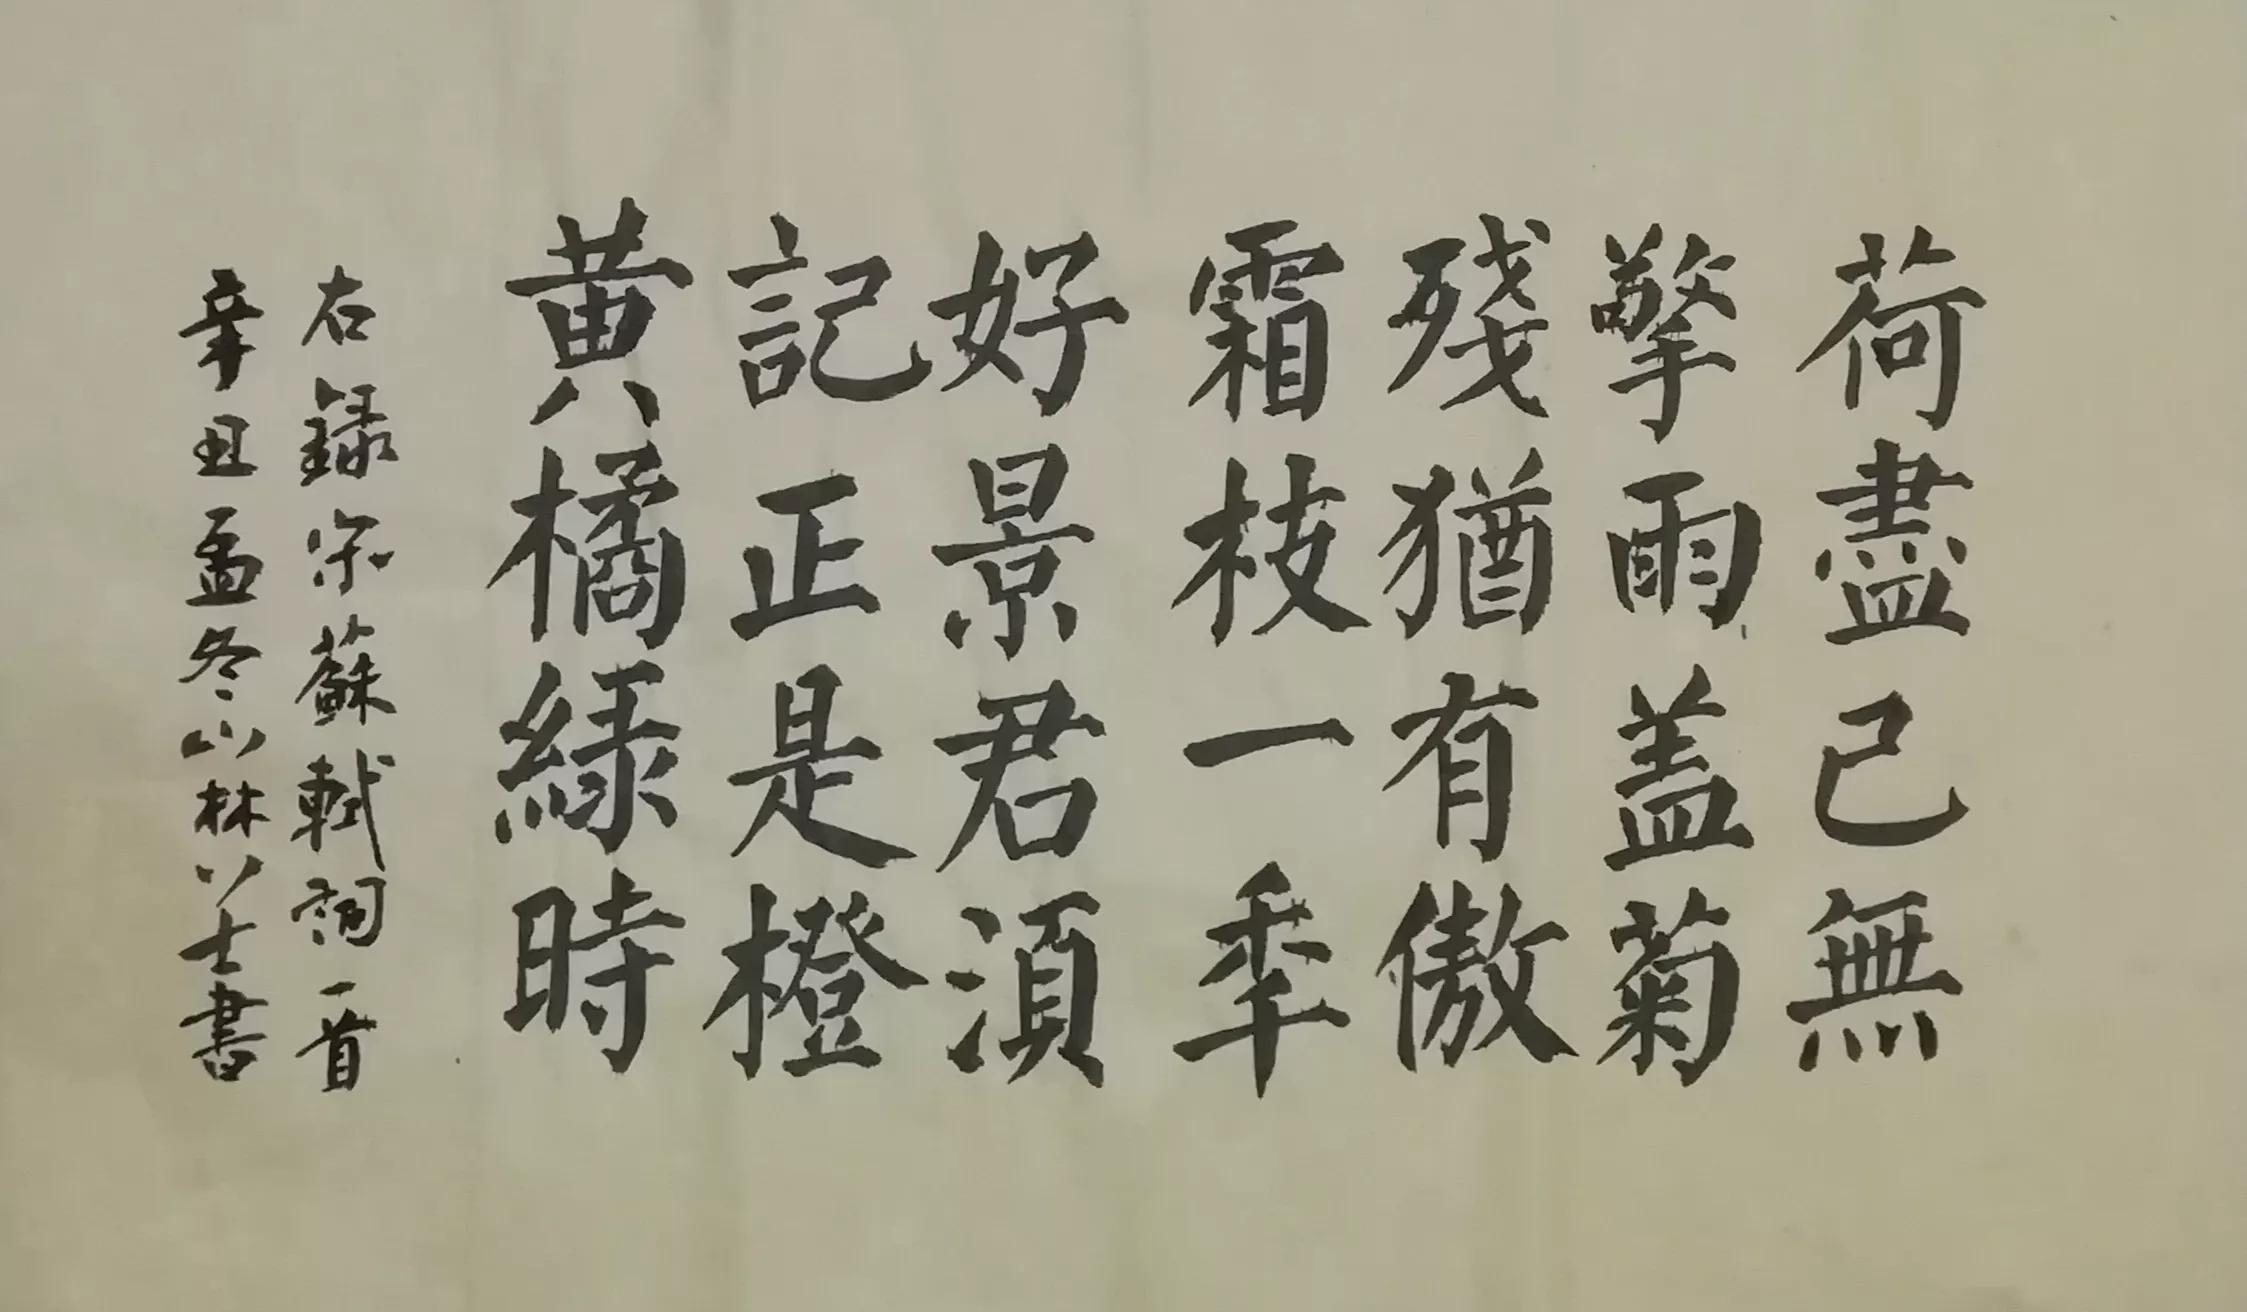 荷盡已無
擎雨盖菊
殘猶有傲
霜枝一秊
好景君湏
記正是橙
黄橘緑時
右録宋蘇軾詞一首
辛丑孟冬山林士書